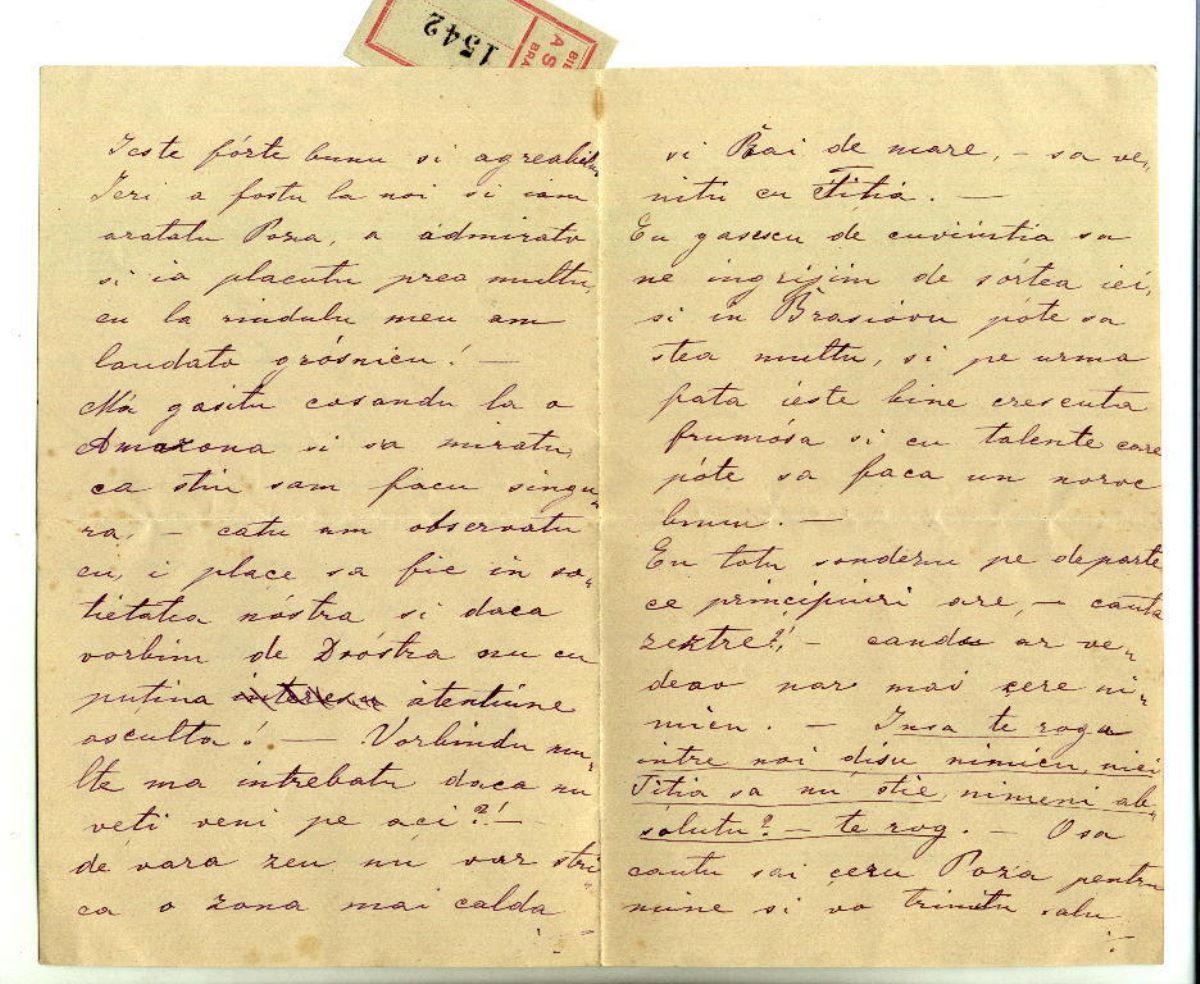 1542
BIB
AS
BRA
Ieste fórte bunu si agreabilu
Ieri a fostu la noi si iam
aratatu Poza, a admirato
si ia placutu prea multu,
eu la rindulu meu am
laudato grósnicu! —
Má gasitu cosandu la o
Amazona si sa miratu,
ca stiu sam facu singu„
ra, — catu am observatu
eu, i place sa fie in so„
tietatea nóstra si daca
vorbim de Dvóstra nu cu
putina interesu atentiune
asculta! — Vorbindu mu„
lte ma intrebatu daca nu
veti veni pe aci?! —
de vara zeu nu var stri„
ca o zona mai calda
si Bai de mare, — sa ve„
nitu cu Titia. —
Eu gasescu de cuviintia sa
ne ingrijim de sórtea iei,
si in Brasiovu póte sa
stea multu, si pe urma
fata ieste bine crescuta
frumósa si cu talente care
póte sa faca un noroc
bunu. —
Eu totu sonderu pe departe
ce principiuri are, — cauta
zektre?! — candu ar ve„
deao nar mai cere ni„
micu. — Insa te roga
intre noi disu nimicu, nici
Titia sa nu stie, nimeni ab„
solutu? — te rog. — Osa
cautu sai ceru Poza pentru
mine si vo trimitu alu